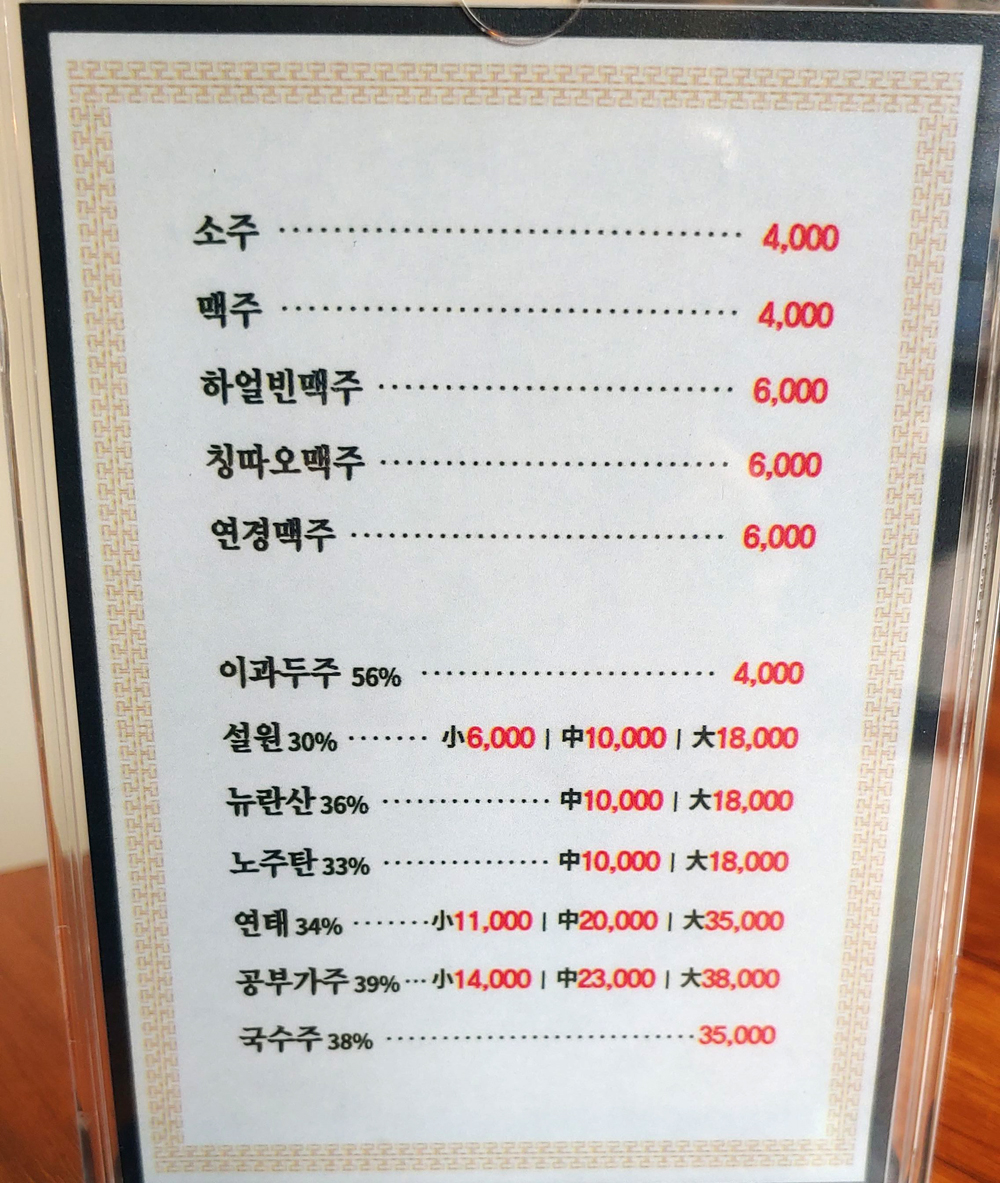 소주 4,000
맥주 4,000
하얼빈맥주 6,000
칭따오맥주 6,000
연경맥주 6,000
이과두주 56% 4,000
설원 30% 小6,000 | 中10,000 | 大18,000
뉴란산 36% 中10,000 | 大18,000
노주탄 33% 中10,000 | 大18,000
연태 34% 小11,000 | 中20,000 | 大35,000
공부가주 39% 小14,000 | 中23,000 | 大38,000
국수주 38% 35,000